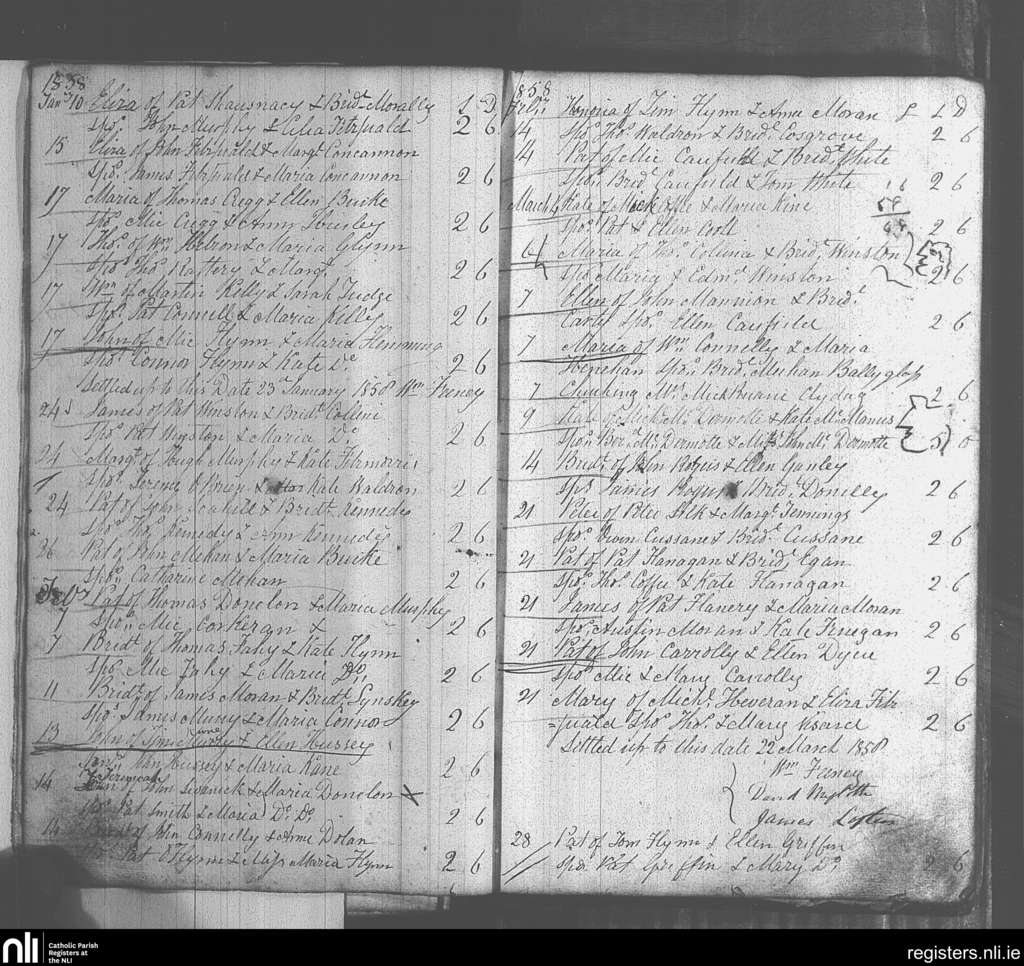 1858
Jany 10 Eliza of Pat Shausnacy & Bridt Morally £ D
Spos. John Murphy & Celia Fitzuald 2 6
15 Eliza of John Fitzuald & Margt Concannon
Spos. James Fitzuald & Maria Concannon 2 6
17 Maria of Thomas Cregg & Ellen Burke
Spos. Mic Cregg & Ann 2 6
17 Thos. of Wm & Maria Glynn
Spos. Thos. Raftery & Margt 2 6
17 Wm of Martin Kelly & Sarah Judge
Spos. Pat Connell & Maria Kelly 2 6
17 John of Mic Flynn & Maria Flemming
Spos. Connor Flynn & Kate Do. 2 6
Settled up to this Date 23rd January 1858 Wm Feeney
24 James of Pat Winston & Bridt Collins
Spos. Pat Winston & Maria Do 2 6
24 Margt of Hugh Murphy & Kate Fitzmorris
Spos. Terence O Brien & Kate Waldron 2 6
24 Pat of John Scahill & Bridt. Kennedy
Spos. Thos. Kennedy & Ann Kennedy 2 6
26 Pat of John Mehan & Maria Burke
Spos. Catharine Mehan 2 6
Feby 7 Pat of Thomas Donelon & Maria Murphy
Spos. Mic Corkeran X 2 6
7 Bridt of Thomas Fahy & Kate Flynn
Spos. Mic Fahy & Maria Do. 2 6
11 Bridt of James Moran & Bridt Lynskey
Spos. James & Maria Connor 2 6
13 John of & Ellen Hussey
John Hussey & Maria Kane 2 6
14 of John & Maria Donelon X
Spos. Pat Smith & Maria Do. Do. 2 6
14 of John Connelly & Anne Dolan
Pat O'Flynn & Miss Maria Flynn 2 6
1858
Honoria of Tim Flynn & Anne Moran £ D
14 Spos. Thos. Waldron & Bridt Cosgrove 2 6
14 Pat of Mic Caufield & Bridt. White
Spos. Bridt. Caufield & Tom White 2 6
March 4 Kate of & Maria Kine
Spos. Pat & Ellen 2 6
6 Maria of Thos. Collins & Bridt. Winston
Spos. Maria & Edmd. Winston 2 6
7 Ellen of John Mannion & Bridt.
Carty Spos. Ellen Caufield 2 6
7 Maria of Wm. Connelly & Maria
Henehan Spos. Bridt. Mehan Ballyglass
7 Churching Mrs. Mick Ruane Clydag 2 6
9 Kate of Mick Mc Dermotte & Kate McManus
Spos. Bernd Mc Dermotte & Mrs John Mc Dermotte 5 0
14 Bridt. of John Rogers & Ellen Ganley
Spos James Rogers & Bridt. Donelly 2 6
21 Peter of Peter Silk & Margt. Jennings
Spos. Owen Cussane & Bridt. Cussane 2 6
21 Pat of Pat Flanagan & Bridt. Egan
Spos. Thos. Coffee & Kate Flanagan 2 6
21 James of Pat Flanery & Maria Moran
Spos. Austin Moran & Kate Finegan 2 6
21 Pat of John Carrolly & Ellen Dyer
Spos. Mic & Mary Carrolly 2 6
21 Mary of Michl. Heveran & Eliza Fitz
=juald Spos. Thos. & Mary Ward 2 6
Settled up to this date 22 March 1858
Wm Feeney
David
James
28 Pat of Tom Flynn & Ellen Griffin
Spos. Pat Griffin & Mary Do. 2 6
nli Catholic Parish
Registers at
the NLI
registers.nli.ie